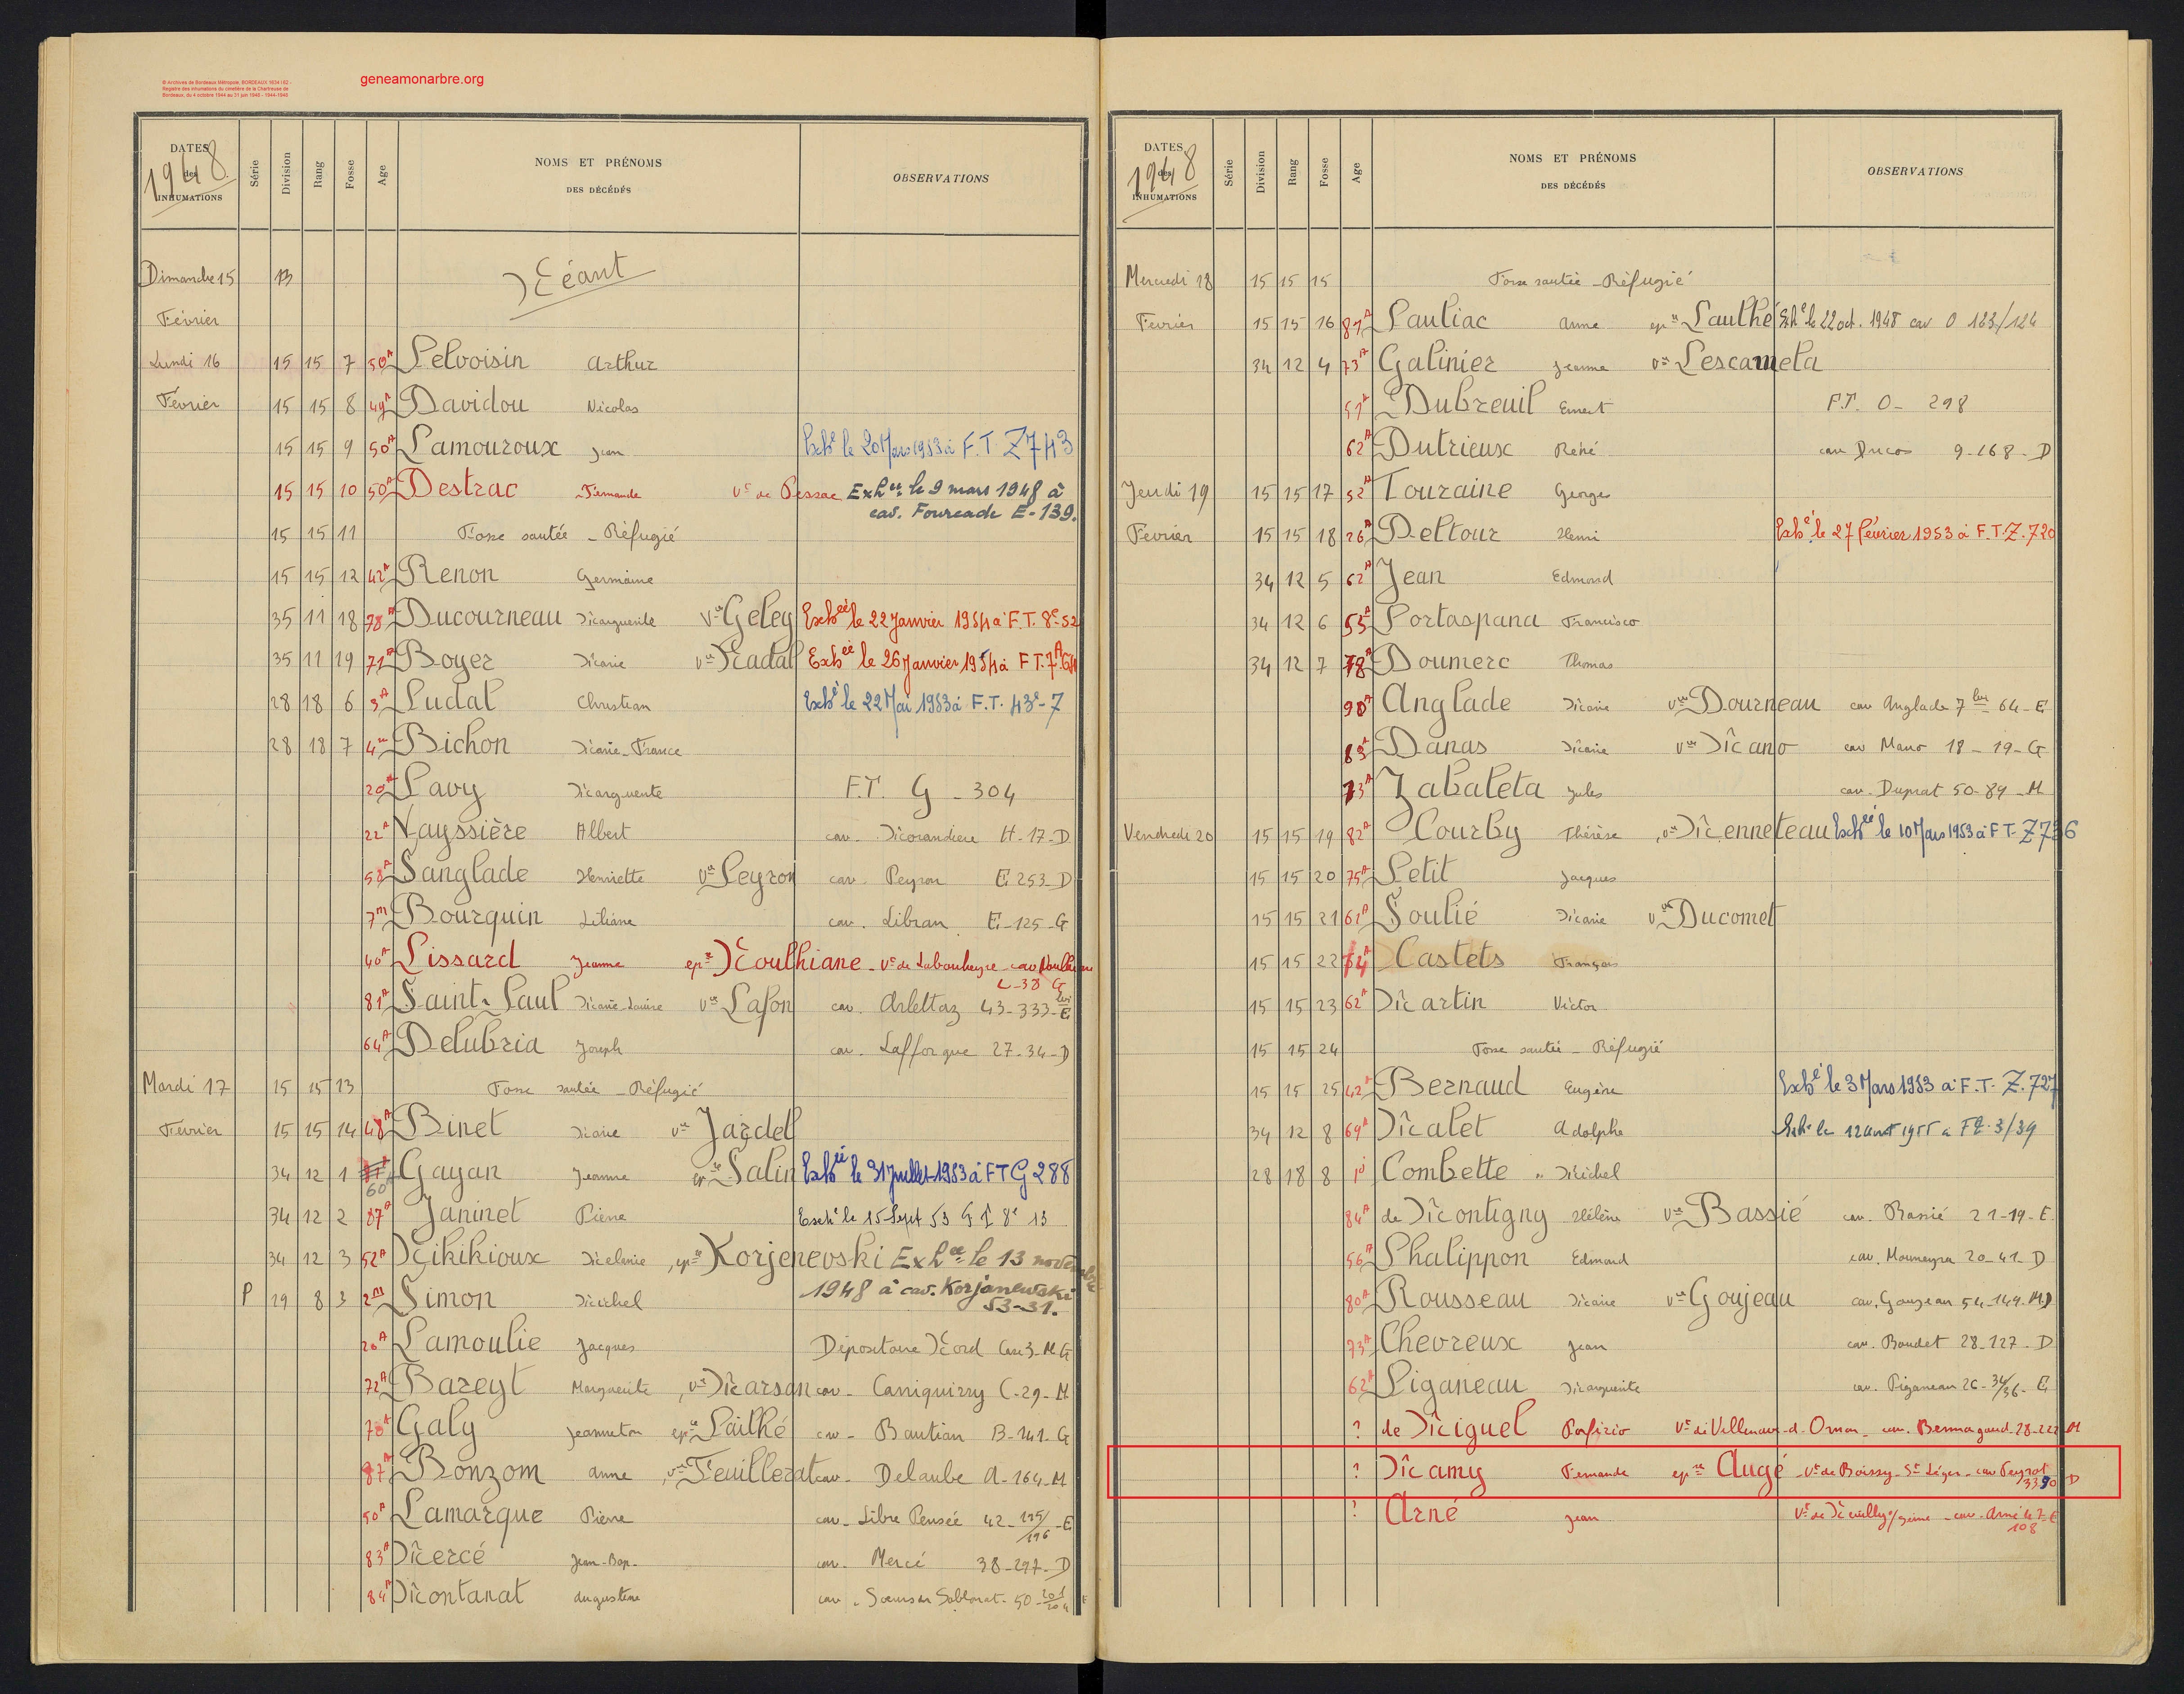 © Archives de Bordeaux Métropole, BORDEAUX 1634 I 62 -
Registre des inhumations du cimetière de la Chartreuse de
Bordeaux, du 4 octobre 1944 au 31 juin 1948 - 1944-1948
geneamonarbre.org
DATES des INHUMATIONS 1948 Série Division Rang Fosse Age NOMS ET PRÉNOMS DES DÉCÉDÉS OBSERVATIONS
Dimanche 15 13 Néant
Février
Lundi 16 15 15 7 50A Pelvoisin Arthur
Février 15 15 8 49A Davidou Nicolas
15 15 9 50A Lamouroux Jean Exhé le 20 Mars 1953 à F.T. Z 743
15 15 10 50A Destrac Fernande Vt de Pessac Exhée le 9 mars 1948 à
cav. Fourcade E-139.
15 15 11 Fosse sautée - Réfugié
15 15 12 42A Renon Germaine
35 11 18 78A Ducourneau Marguerite Vve Geley Exhée le 22 Janvier 1954 à F.T. 8e 52
35 11 19 71A Boyer Marie Vve Nadal Exhée le 26 Janvier 1954 à F.T. 7A
28 18 6 3A Ludal Christian Exhé le 22 Mai 1953 à F.T. 43e-7
28 18 7 4m Bichon Marie-France
20A Pavy Marguerite F.T. G - 304
22A Vayssière Albert cav. Morandiere H-17-D
58A Sanglade Henriette Vve Peyron cav. Peyron E 253-D
7m Bourquin Liliane cav. Libran E-125-G
40A Lissard Jeanne épse Noulhiane - Vt de Labouheyre - cav
L-38 G
81A Saint-Paul Marie-Louise Vve Lafon cav. Arlettaz 43-333 bis-E
64A Delubria Joseph cav. Lafforgue 27-34-D
Mardi 17 15 15 13 Fosse sautée - Réfugié
Février 15 15 14 48A Binet Marie Vve Jardel
34 12 1 60 Gayan Jeanne épse Salin Exhée le 31 Juillet 1953 à F T G 288
34 12 2 87A Janinet Pierre Exhé le 15 Sept 53 8e 13
34 12 3 52A Nikikioux Melanie épse Korjenevski Exhée le 13 novembre
P 29 8 3 2m Simon Michel 1948 à cav. Korjanewski
53-31.
20A Lamoulie Jacques Dépositoire Nord Case 3-M.G
72A Bareyt Marguerite Vve Marsan cav. Carriquirry C-29-M
78A Galy Jeanneton épse Pailhé cav. Bautian B-141-G
87A Bonzom Anne Vve Feuillerat cav. Delaube A-164-M
50A Lamarque Pierre cav. Libre Pensée 42-195/196-E
83A Mercé Jean-Bap. cav. Mercé 38-297-D
84A Montanat Augustine cav. 50-
DATES des INHUMATIONS 1948 Série Division Rang Fosse Age NOMS ET PRÉNOMS DES DÉCÉDÉS OBSERVATIONS
Mercredi 18 15 15 15 Fosse sautée - Réfugié
Février 15 15 16 87A Pauliac Anne épse Laulhé Exhé le 22 oct. 1948 cav O 123/124
34 12 4 73A Galinier Jeanne Vve Lescamela
51A Dubreuil Ernest F.T. O - 298
62A Dutrieux Réné cav Ducos 9-168-D
Jeudi 19 15 15 17 52A Touraine Georges
Février 15 15 18 26A Deltour Henri Exhé le 27 février 1953 à F.T. Z. 720
34 12 5 62A Jean Edmond
34 12 6 55A Portaspana Francisco
34 12 7 78A Doumerc Thomas
90A Anglade Marie Vve Dourneau cav Anglade 7 bis 64-E
83A Danas Marie Vve Mano cav Mano 18-19-G
73A Zabaleta Jules cav. Duprat 50-89-M
Vendredi 20 15 15 19 82A Courby Thérèse Vve Menneteau Exhée le 10 Mars 1953 à F.T. Z 736
15 15 20 75A Petit Jacques
15 15 21 61A Soulié Marie Vve Ducomet
15 15 22 64A Castets François
15 15 23 62A Martin Victor
15 15 24 Fosse sautée - Réfugié
15 15 25 42A Bernaud Eugène Exhé le 3 Mars 1953 à F.T. Z. 727
34 12 8 69A Malet Adolphe Exhé le 12 Aout 1955 a FT 3/39
28 18 8 1j Combette Michel
84A de Montigny Hélène Vve Bassié cav. Bassié 21-19-E
56A Phalippon Edmond cav. Moumeyra 20-41-D
80A Rousseau Marie Vve Goujeau cav. Goujeau 54-149-M.D
73A Chevreux Jean cav. Baudet 28-127-D
62A Piganeau Marguerite cav. Piganeau 26-34/36-E
? de Miguel Porfirio Vt de Villenave-d-Ornon cav. 28-222 M
? Mamy Fernande épse Augé - Vt de Boissy-St Léger - cav Peyrot
33 90 D
? Arné Jean Vt de Neuilly s/Seine - cav. Arné 47-E
108